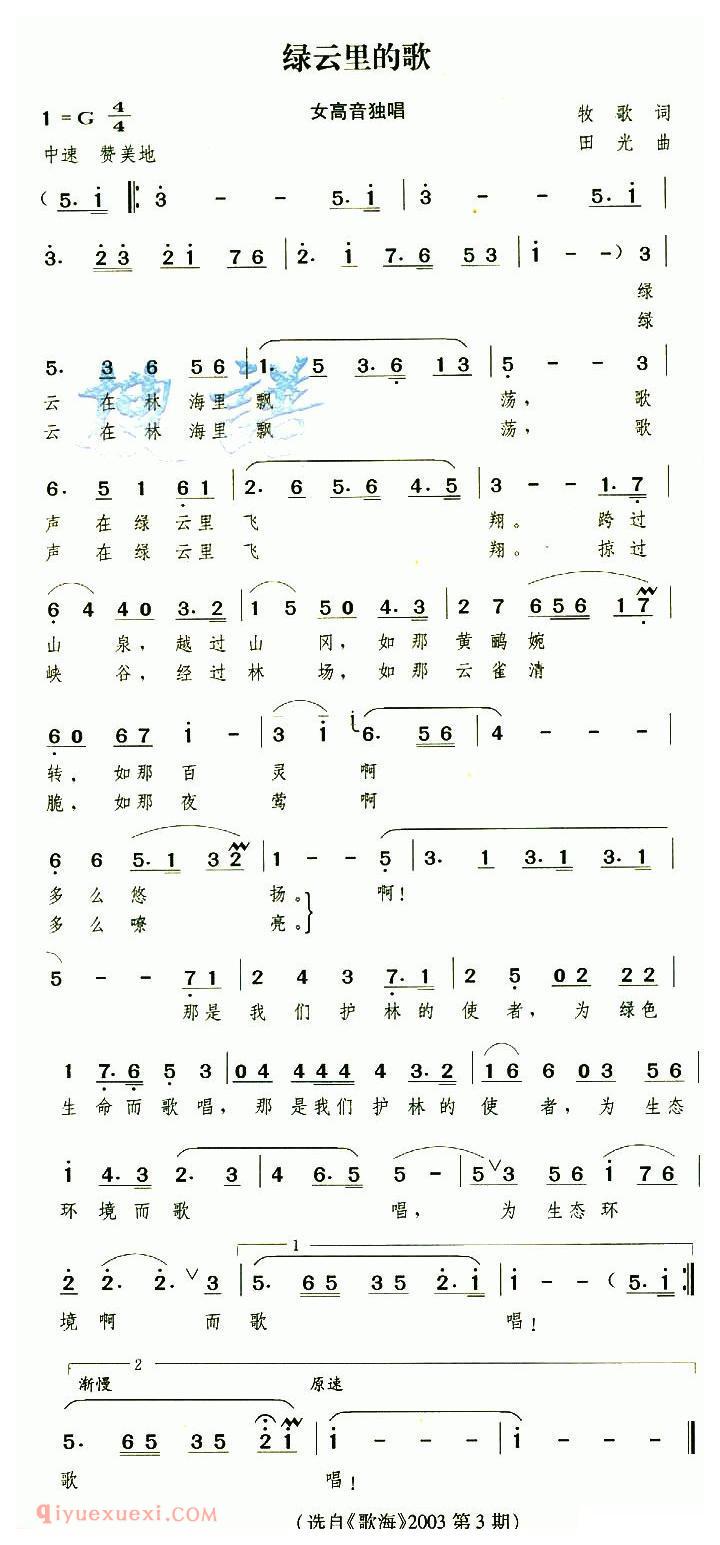 绿云里的歌
1=G 4/4
女高音独唱
牧歌词
中速 赞美地
田光曲
(5. 1 ‖: 3 - - 5. 1 | 3 - - 5. 1 |
3. 23 21 76 | 2. 1 7.6 53 | 1 - -) 3 |
绿
绿
5. 3 6 56 | 1. 5 3.6 13 | 5 - - 3 |
云在林海里飘荡,歌
云在林海里飘荡,歌
6. 5 1 61 | 2. 6 5.6 4.5 | 3 - - 1.7 |
声在绿云里飞翔。跨过
声在绿云里飞翔。掠过
6 4 40 3.2 | 1 5 50 4.3 | 2 7 656 17 |
山泉,越过山冈,如那黄鹂婉
峡谷,经过林场,如那云雀清
60 67 1 - | 3 1 1 6. 56 | 4 - - - |
转,如那百灵啊
脆,如那夜莺啊
6 6 5.1 32 | 1 - - 5 | 3. 1 3.1 3.1 |
多么悠扬。啊!
多么嘹亮。
5 - - 71 | 2 4 3 7.1 | 2 5 02 22 |
那是我们护林的使者,为绿色
1 7.6 5 3 | 04 444 4 3.2 | 16 6 03 56 |
生命而歌唱,那是我们护林的使者,为生态
1 4.3 2. 3 | 4 6.5 5 - | 5 ∨ 3 56 1 76 |
环境而歌唱,为生态环
1
2 2. 2. ∨ 3 | 5. 65 35 2.1 | 1 - - (5.1 :‖
境啊而歌唱!
2
渐慢 原速
5. 65 35 21 | 1 - - - | 1 - - - ‖
歌唱!
qiyuexuexi.com
(选自《歌海》2003第3期)